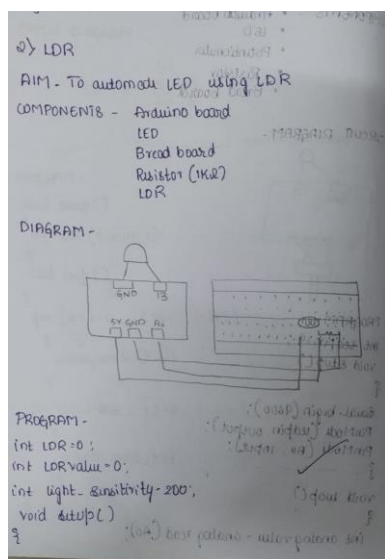 2) LDR
AIM - To automate LED using LDR
COMPONENTS - Arduino board
LED
Bread board
Resistor (1KΩ)
LDR
DIAGRAM -
GND 13
5V GND A0
LDR
PROGRAM -
int LDR = 0;
int LDRvalue = 0;
int light_sensitivity = 200;
void setup()
{